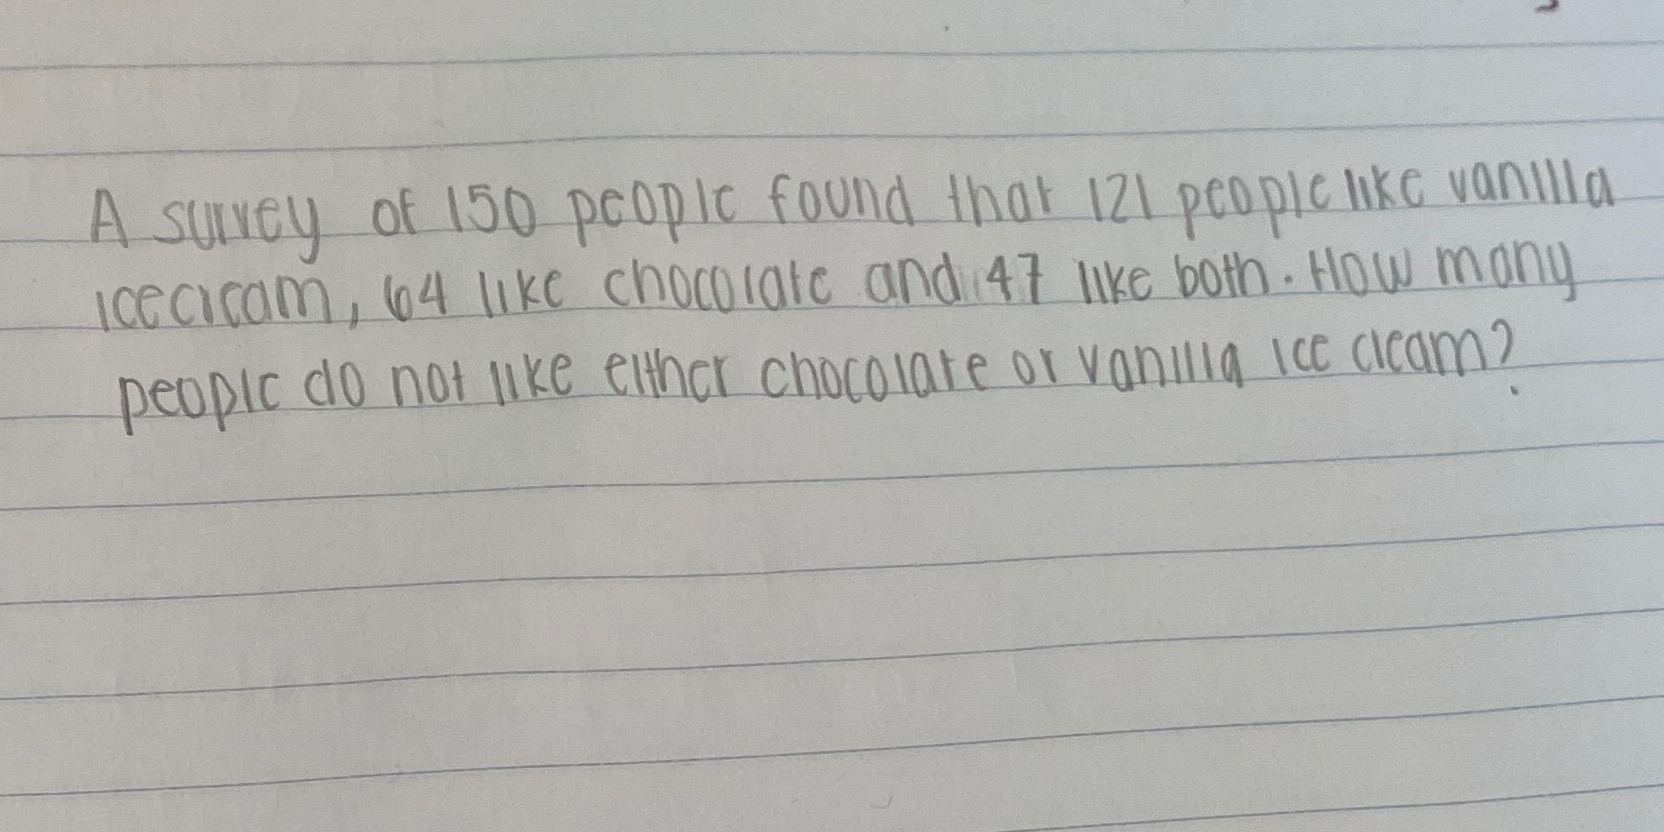 A survey of 150 people found that 121 people like vanilla
icecream, 64 like chocolate and 47 like both. How many
people do not like either chocolate or vanilla ice cream?